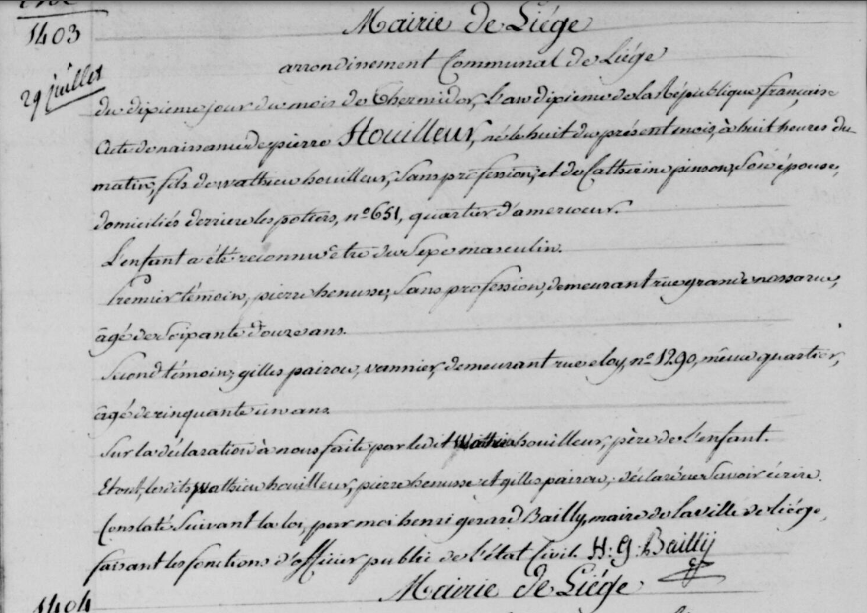 1403
Mairie de Liége
29 juillet
arrondissement Communal de Liége
du dixieme jour du mois de Thermidor, L'an dixieme de la République française
Acte de naissance de pierre Houilleur, né le huit du présent mois, à huit heures du
matin, fils de mathieu houilleur, sans profession, et de Catherine pinson, son épouse,
domiciliés derriere les potiers, n.º 651, quartier d'amercoeur.
L'enfant a été reconnu etre du sexe masculin.
Premier témoin, pierre henusse, sans profession, demeurant rue grande
âgé de soixante douze ans.
Second témoin, gilles pairou, vannier, demeurant rue eloy, n.º 1290, même quartier,
âgé de cinquante un ans.
Sur la déclaration à nous faite par ledit Mathieu houilleur, père de L'enfant.
Et ont, lesdits Mathieu houilleur, pierre henusse et gilles pairou, déclaré ne savoir écrire.
Constaté suivant la loi, par moi henri gerard Bailly, maire de la ville de liége,
faisant les fonctions d'officier public de l'état Civil. H. G. Bailly
Mairie de Liége
1404